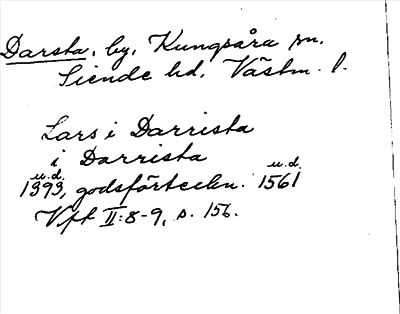 Darsta, by, Kungsåra sn.
Siende hd, Västm. l.
Lars i Darrista
i Darrista
u.d. u.d.
1393, godsförteckn. 1561
Vft II:8-9, s. 156.